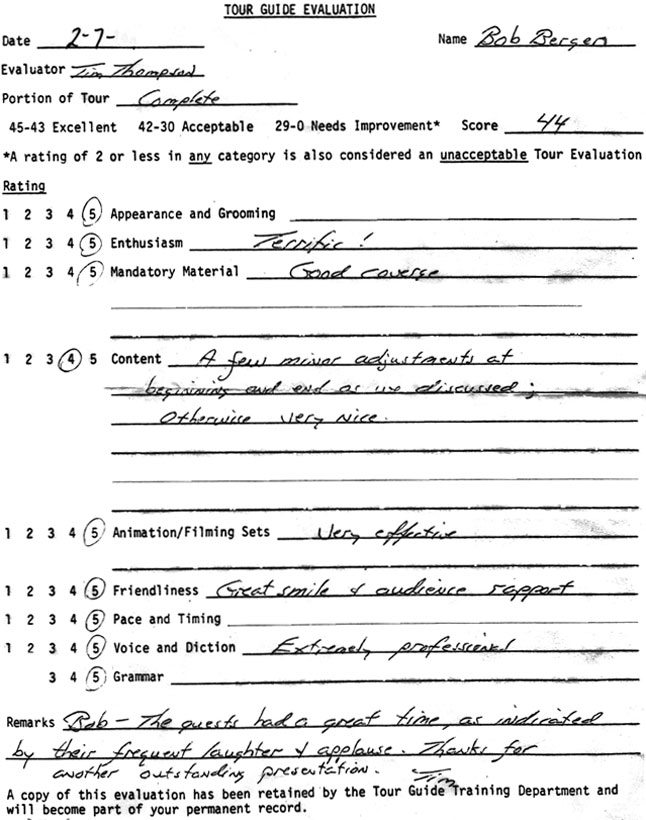 TOUR GUIDE EVALUATION
Date 2-7- Name Bob Bergen
Evaluator Tim Thompson
Portion of Tour Complete
45-43 Excellent 42-30 Acceptable 29-0 Needs Improvement* Score 44
*A rating of 2 or less in any category is also considered an unacceptable Tour Evaluation
Rating
1 2 3 4 5 Appearance and Grooming
1 2 3 4 5 Enthusiasm Terrific!
1 2 3 4 5 Mandatory Material Good coverge
1 2 3 4 5 Content A few minor adjustments at
beginining and end as we discussed;
Otherwise very nice.
1 2 3 4 5 Animation/Filming Sets Very effective
1 2 3 4 5 Friendliness Great smile & audience rapport
1 2 3 4 5 Pace and Timing
1 2 3 4 5 Voice and Diction Extremely professional
3 4 5 Grammar
Remarks Bob - The guests had a great time, as indicated
by their frequent laughter & applause. Thanks for
another outstanding presentation. Tim
A copy of this evaluation has been retained by the Tour Guide Training Department and
will become part of your permanent record.